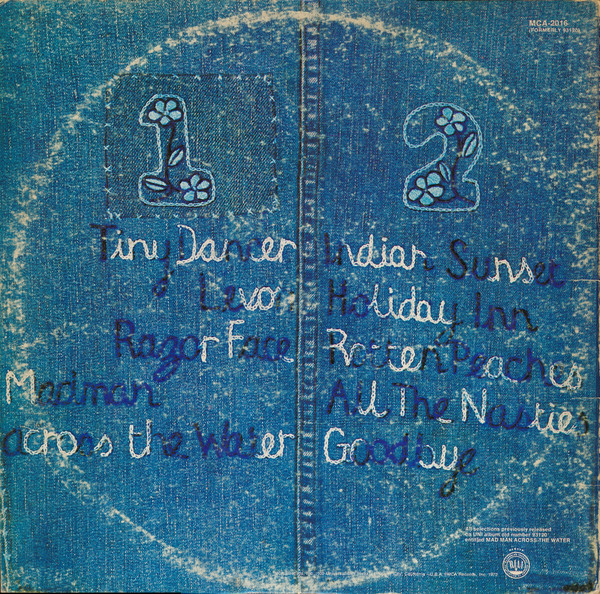 MCA-2016
(FORMERLY 93120)
1
Tiny Dancer
Levon
Razor Face
Madman
across the Water
2
Indian Sunset
Holiday Inn
Rotten Peaches
All The Nasties
Goodbye
All selections previously released
as UNI album old number 93120
entitled MAD MAN ACROSS THE WATER
U.S.A. MCA Records, Inc. 1973